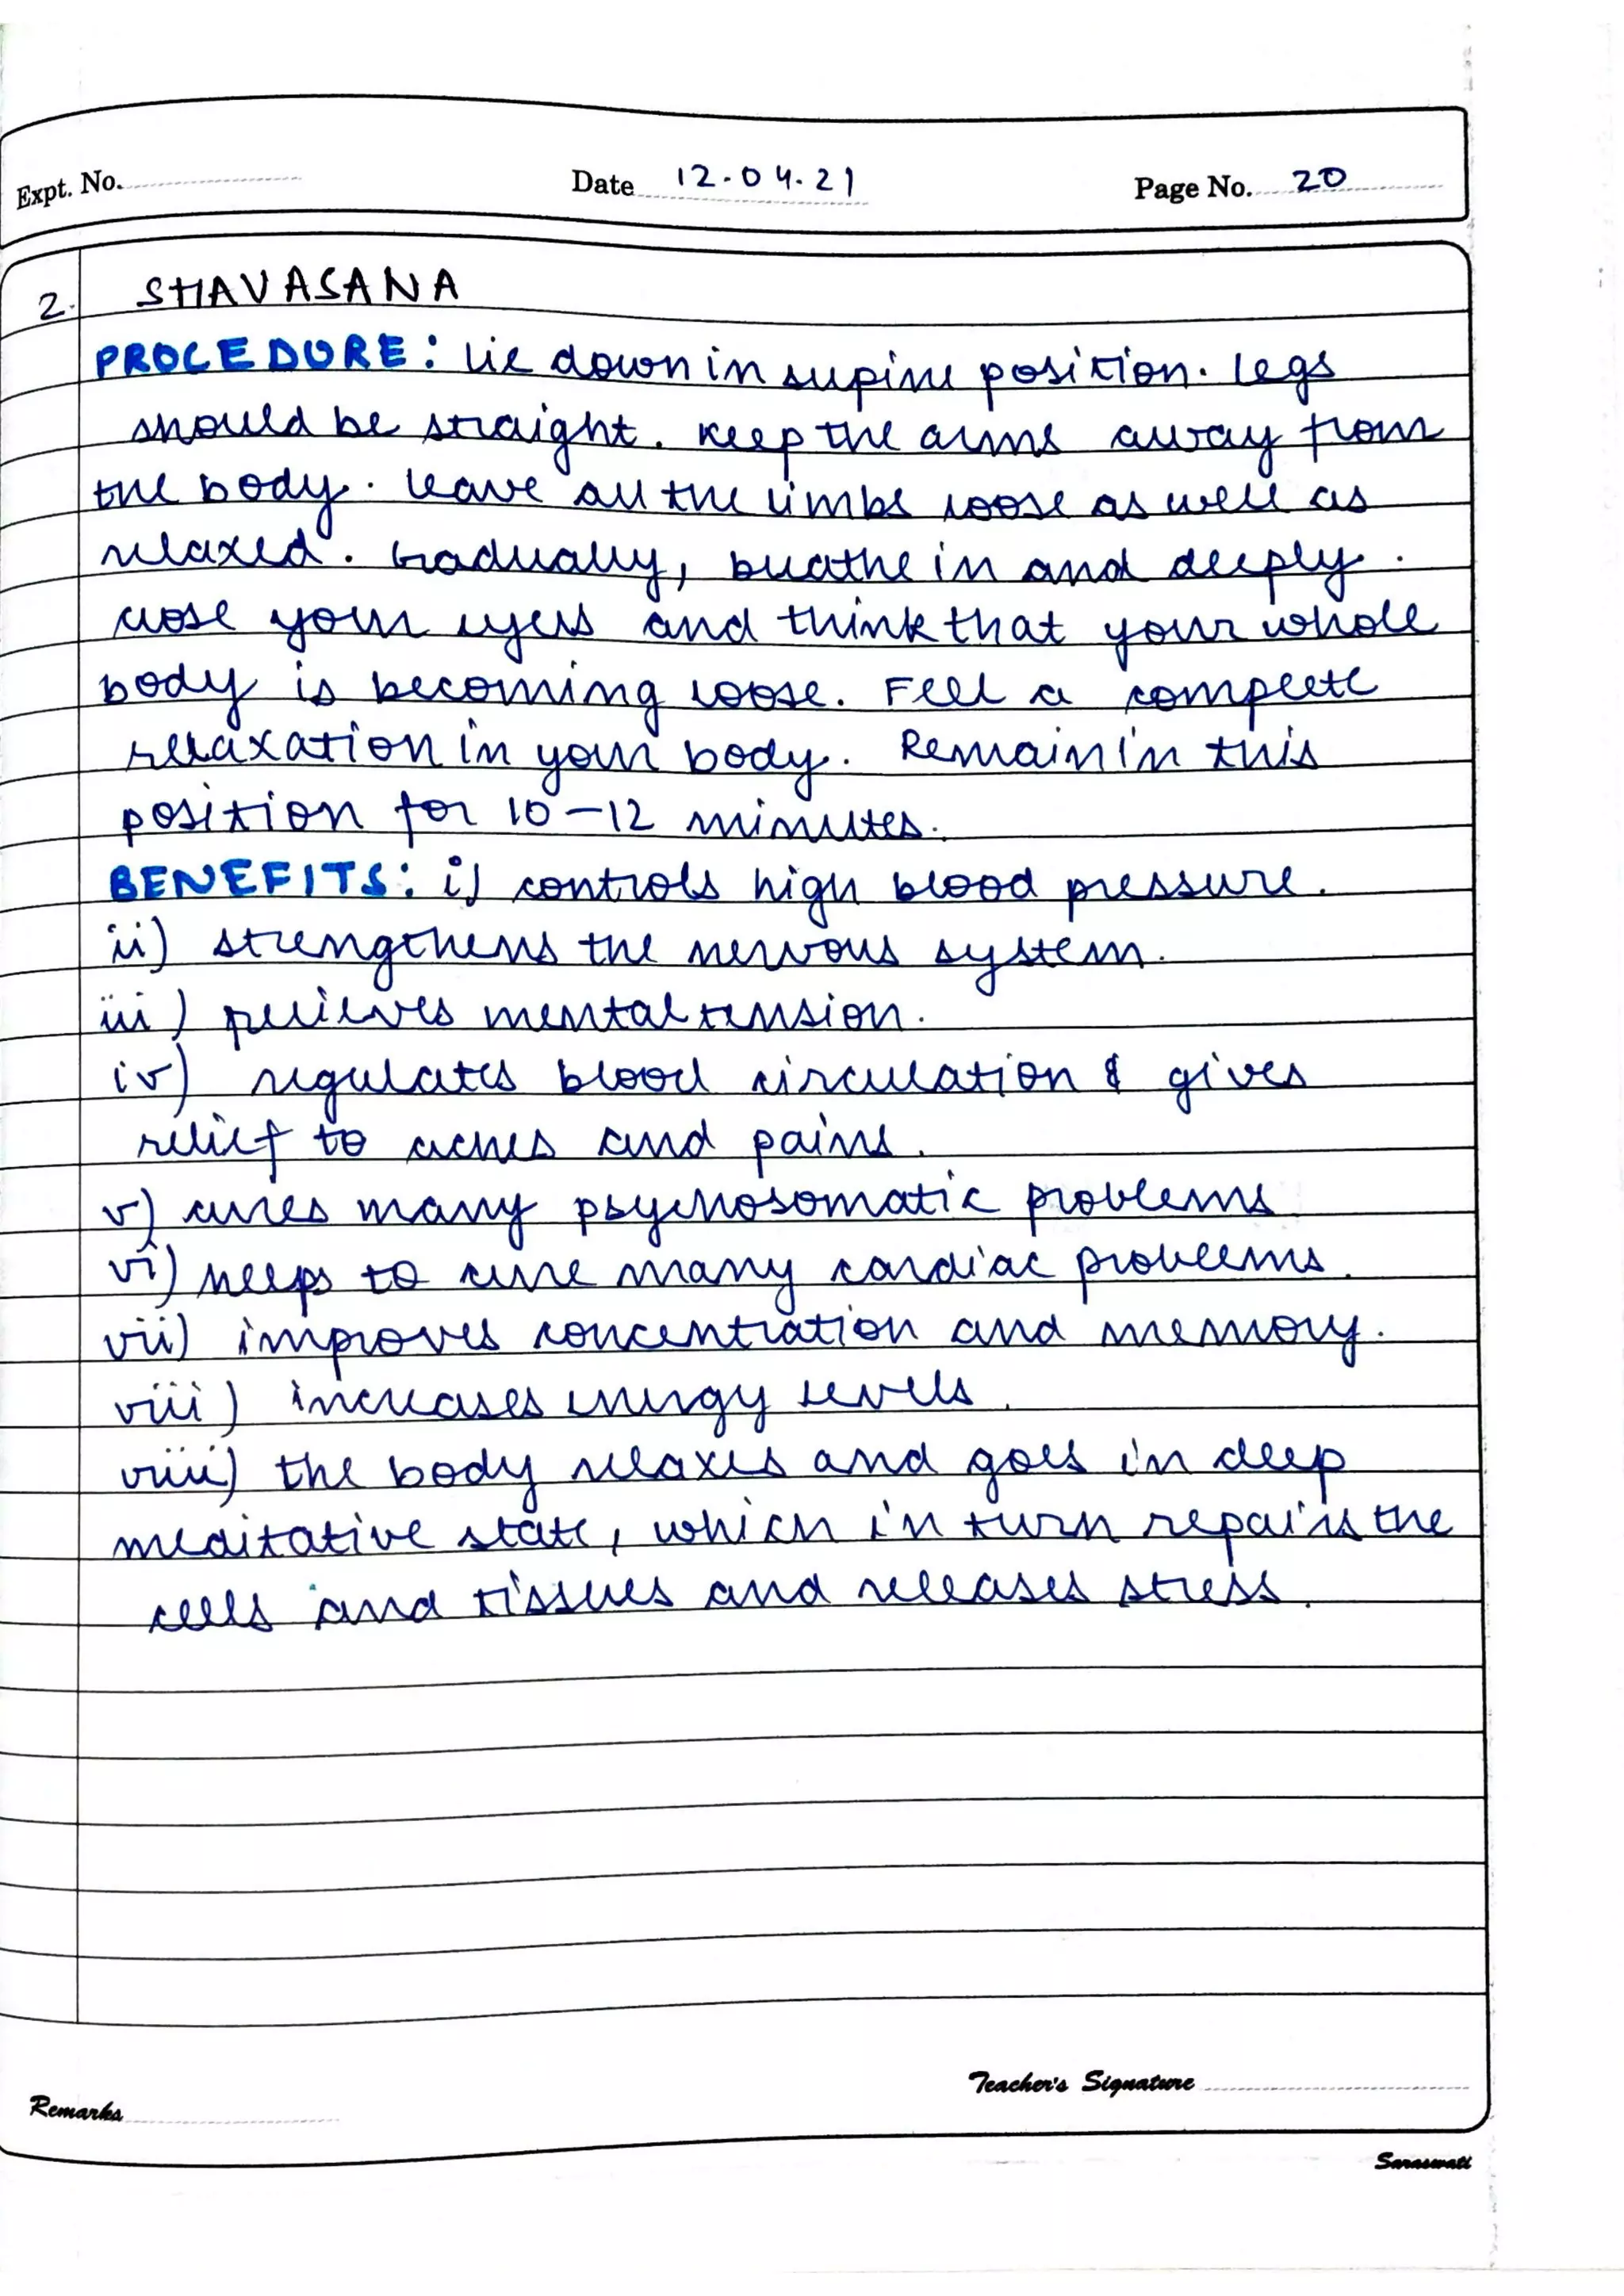 Expt. No. Date 12.04.21 Page No. 20
2. SHAVASANA
PROCEDURE: lie down in supine position. legs
should be straight. keep the arms away from
the body. leave all the limbs loose as well as
relaxed. Gradually, breathe in and deeply.
close your eyes and think that your whole
body is becoming loose. Feel a complete
relaxation in your body. Remain in this
position for 10-12 minutes.
BENEFITS: i) controls high blood pressure.
ii) strengthens the nervous system.
iii) relieves mental tension.
iv) regulates blood circulation & gives
relief to aches and pains.
v) cures many psychosomatic problems
vi) helps to cure many cardiac problems.
vii) improves concentration and memory.
viii) increases energy levels.
viiii) the body relaxes and goes in deep
meditative state, which in turn repairs the
cells and tissues and releases stress.
Teacher's Signature
Remarks
Saraswati